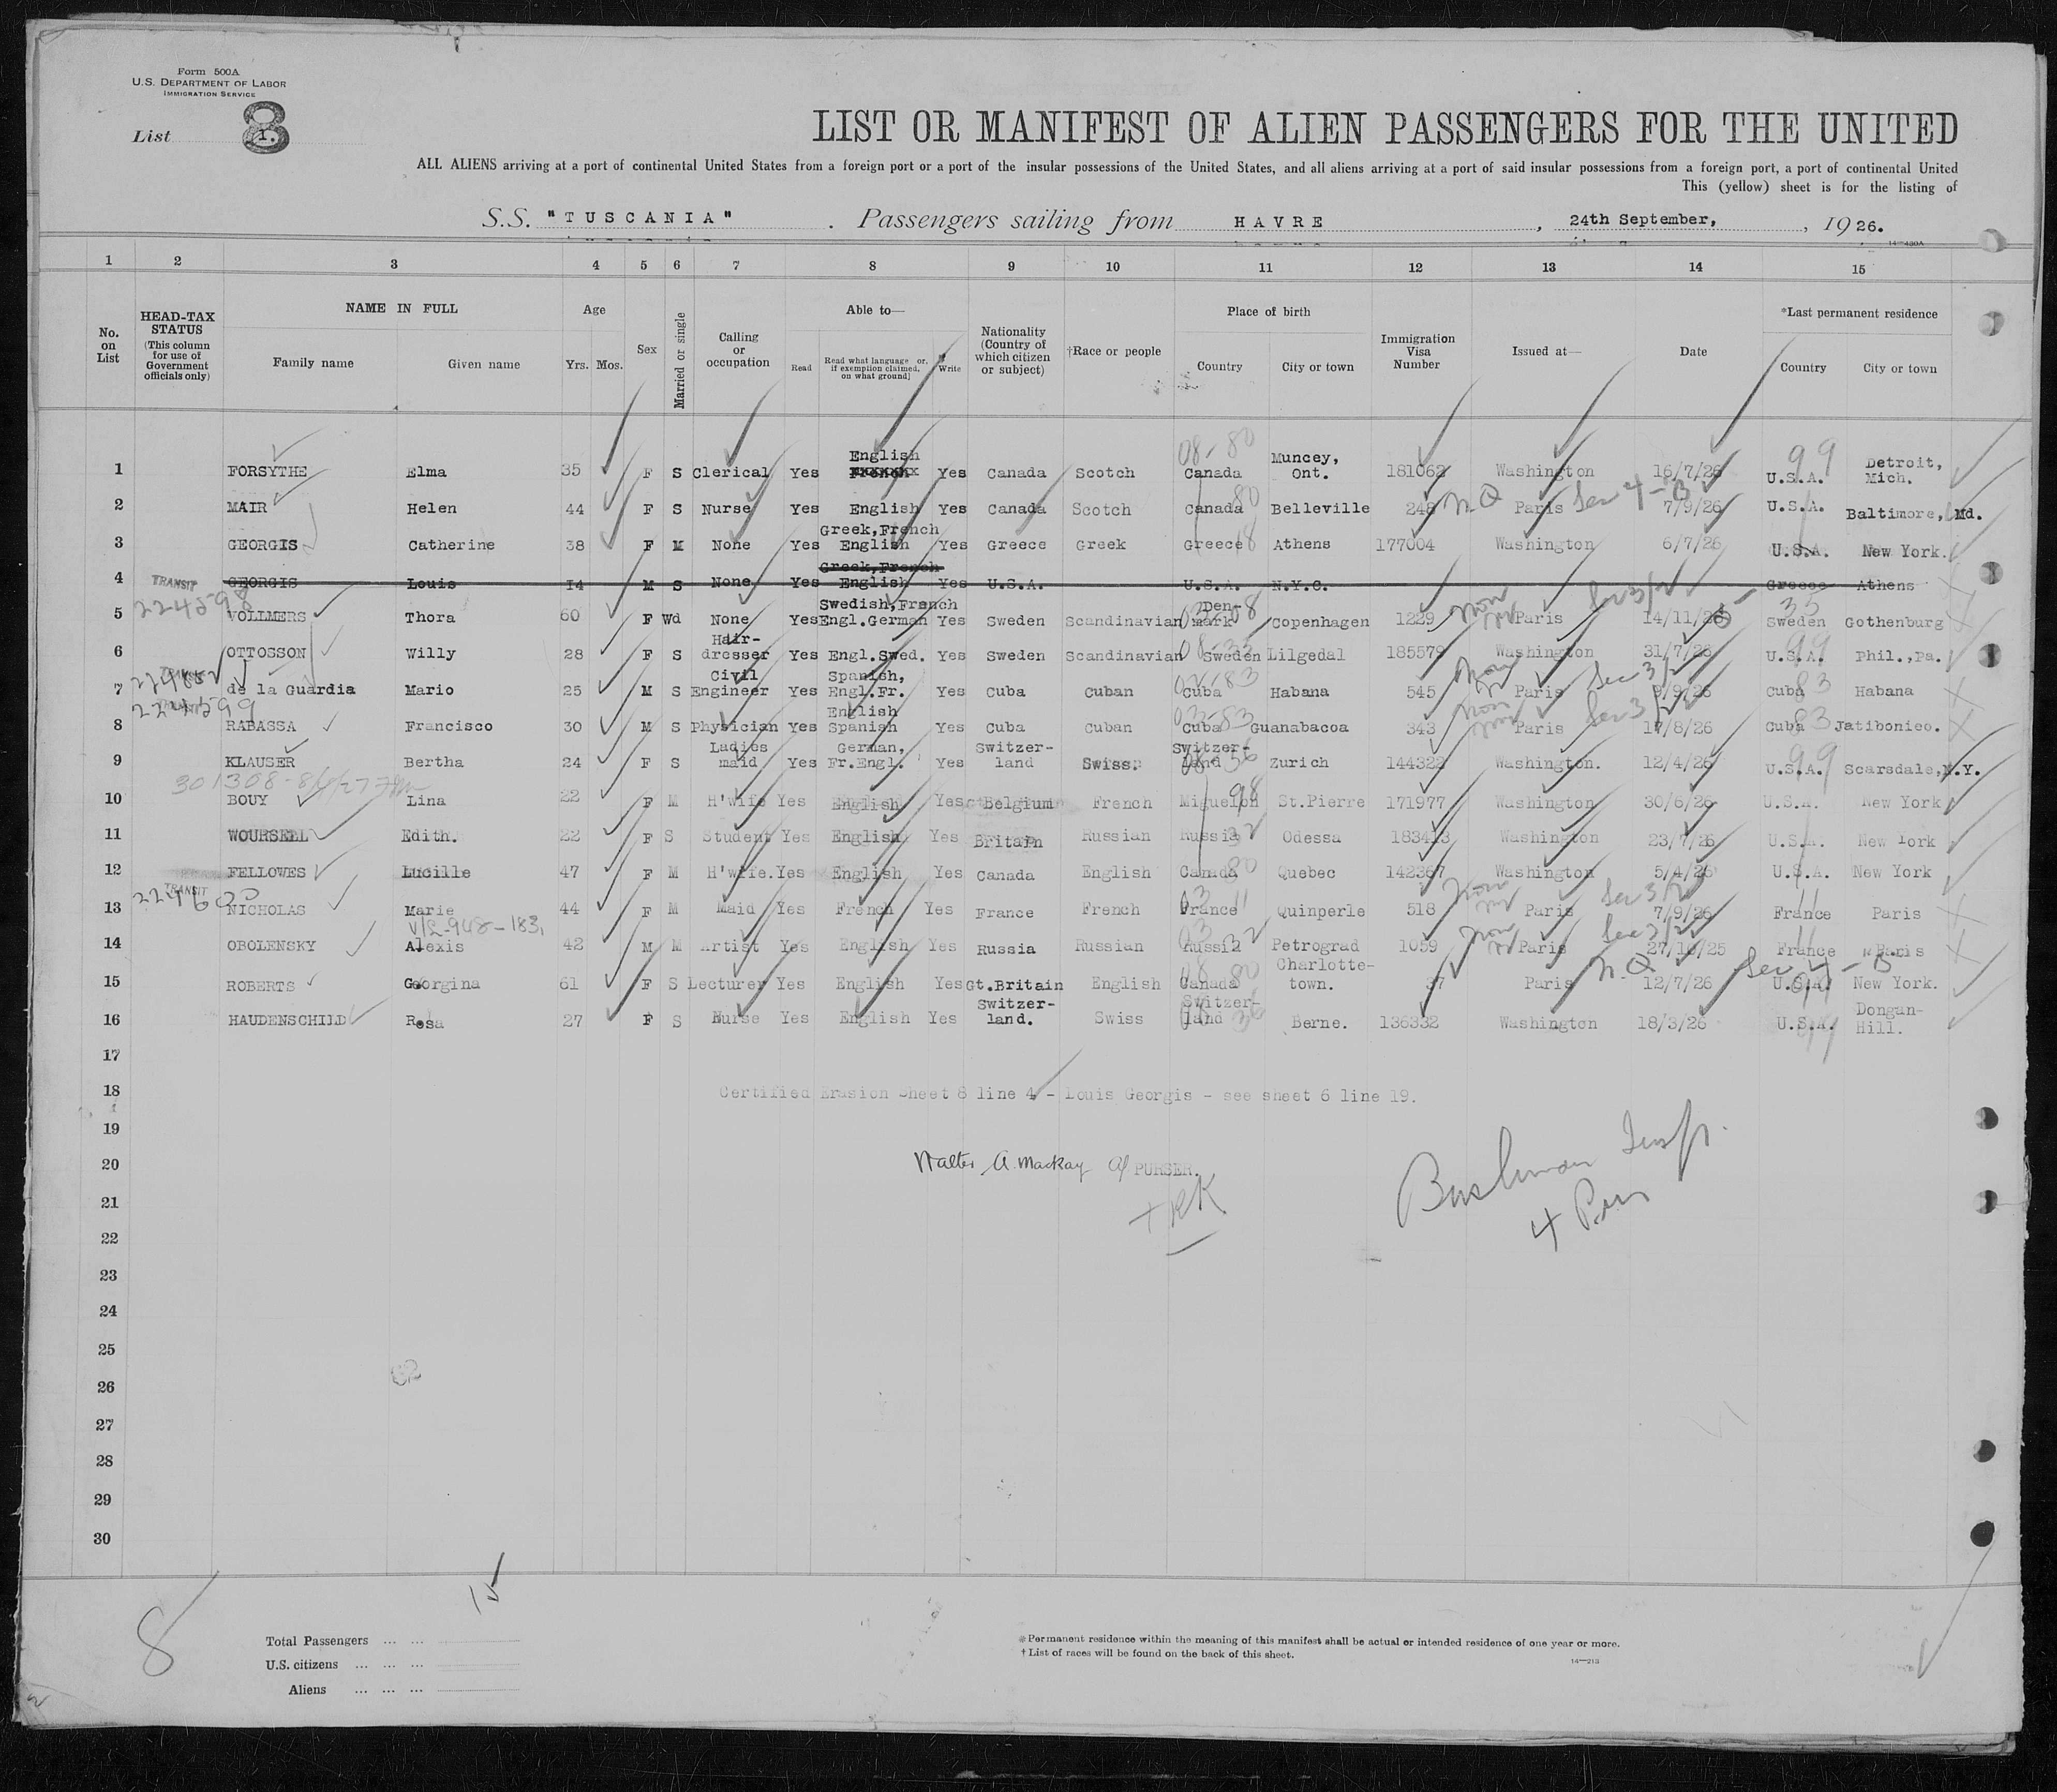 Form 500A
U.S. DEPARTMENT OF LABOR
IMMIGRATION SERVICE
List 8 1.
LIST OR MANIFEST OF ALIEN PASSENGERS FOR THE UNITED
ALL ALIENS arriving at a port of continental United States from a foreign port or a port of the insular possessions of the United States, and all aliens arriving at a port of said insular possessions from a foreign port, a port of continental United
This (yellow) sheet is for the listing of
S.S. "TUSCANIA" . Passengers sailing from HAVRE , 24th September, , 1926.
14—430A
1 2 3 4 5 6 7 8 9 10 11 12 13 14 15
No. on List
HEAD-TAX STATUS (This column for use of Government officials only)
NAME IN FULL
Family name Given name
Age
Yrs. Mos.
Sex
Married or single
Calling or occupation
Able to—
Read Read what language or, if exemption claimed, on what ground] Write
Nationality (Country of which citizen or subject)
†Race or people
Place of birth
Country City or town
Immigration Visa Number
Issued at—
Date
*Last permanent residence
Country City or town
1 FORSYTHE Elma 35 F S Clerical Yes English Yes Canada Scotch 08-80 Canada Muncey, Ont. 181062 Washington 16/7/26 99 U.S.A. Detroit, Mich.
2 MAIR Helen 44 F S Nurse Yes English Yes Canada Scotch Canada 80 Belleville 248 N.Q Paris Sec 4-B 7/9/26 U.S.A. Baltimore, Md.
3 GEORGIS Catherine 38 F M None Yes Greek,French English Yes Greece Greek Greece Athens 177004 Washington 6/7/26 U.S.A. New York.
4 GEORGIS Louis 14 M S None Yes Greek,French English Yes U.S.A. U.S.A. N.Y.C. Greece Athens
5 TRANSIT 224598 VOLLMERS Thora 60 F Wd None Yes Swedish,French Engl.German Yes Sweden Scandinavian Denmark Copenhagen 1229 Paris Sec 3/2 14/11/26 35 Sweden Gothenburg
6 OTTOSSON Willy 28 F S Hairdresser Yes Engl.Swed. Yes Sweden Scandinavian Sweden Lilgedal 185579 Washington 31/7/26 99 U.S.A. Phil.,Pa.
7 de la Guardia Mario 25 M S Civil Engineer Yes Spanish, Engl.Fr. Yes Cuba Cuban Cuba Habana 545 Paris Sec 3/2 9/9/26 Cuba 83 Habana
8 224599 RABASSA Francisco 30 M S Physician Yes English Spanish Yes Cuba Cuban 03-83 Cuba Guanabacoa 343 Paris Sec 3/2 17/8/26 Cuba 83 Jatibonico.
9 KLAUSER Bertha 24 F S Ladies maid Yes German, Fr.Engl. Yes Switzerland Swiss. Switzerland Zurich 144322 Washington. 12/4/26 99 U.S.A. Scarsdale,N.Y.
10 BOUY Lina 22 F M H'wife Yes English Yes Belgium French Miguelon 98 St.Pierre 171977 Washington 30/6/26 U.S.A. New York
11 WOURSELL Edith. 22 F S Student Yes English Yes Britain Russian Russia 32 Odessa 183413 Washington 23/7/26 U.S.A. New York
12 FELLOWES Lucille 47 F M H'wife. Yes English Yes Canada English Canada 80 Quebec 142367 Washington 5/4/26 U.S.A. New York
13 TRANSIT 224600 NICHOLAS Marie 44 F M Maid Yes French Yes France French 03 11 France Quinperle 518 Paris Sec 3/2 7/9/26 France Paris
14 OBOLENSKY Alexis 42 M M Artist Yes English Yes Russia Russian Russia 32 Petrograd 1059 Paris Sec 3/2 27/10/25 France Paris
15 ROBERTS Georgina 61 F S Lecturer Yes English Yes Gt.Britain English Canada 80 Charlotte-town. 37 Paris N.Q Sec 4-B 12/7/26 U.S.A. New York.
16 HAUDENSCHILD Rosa 27 F S Nurse Yes English Yes Switzerland. Swiss Switzerland 36 Berne. 136332 Washington 18/3/26 U.S.A. Dongan-Hill.
17
18 Certified Erasion Sheet 8 line 4 - Louis Georgis - see sheet 6 line 19.
19
20 Walter A. Mackay PURSER.
21
22
23
24
25
26
27
28
29
30
8
Total Passengers ... ...
U.S. citizens ... ... ...
Aliens ... ... ...
*Permanent residence within the meaning of this manifest shall be actual or intended residence of one year or more.
†List of races will be found on the back of this sheet.
14—213